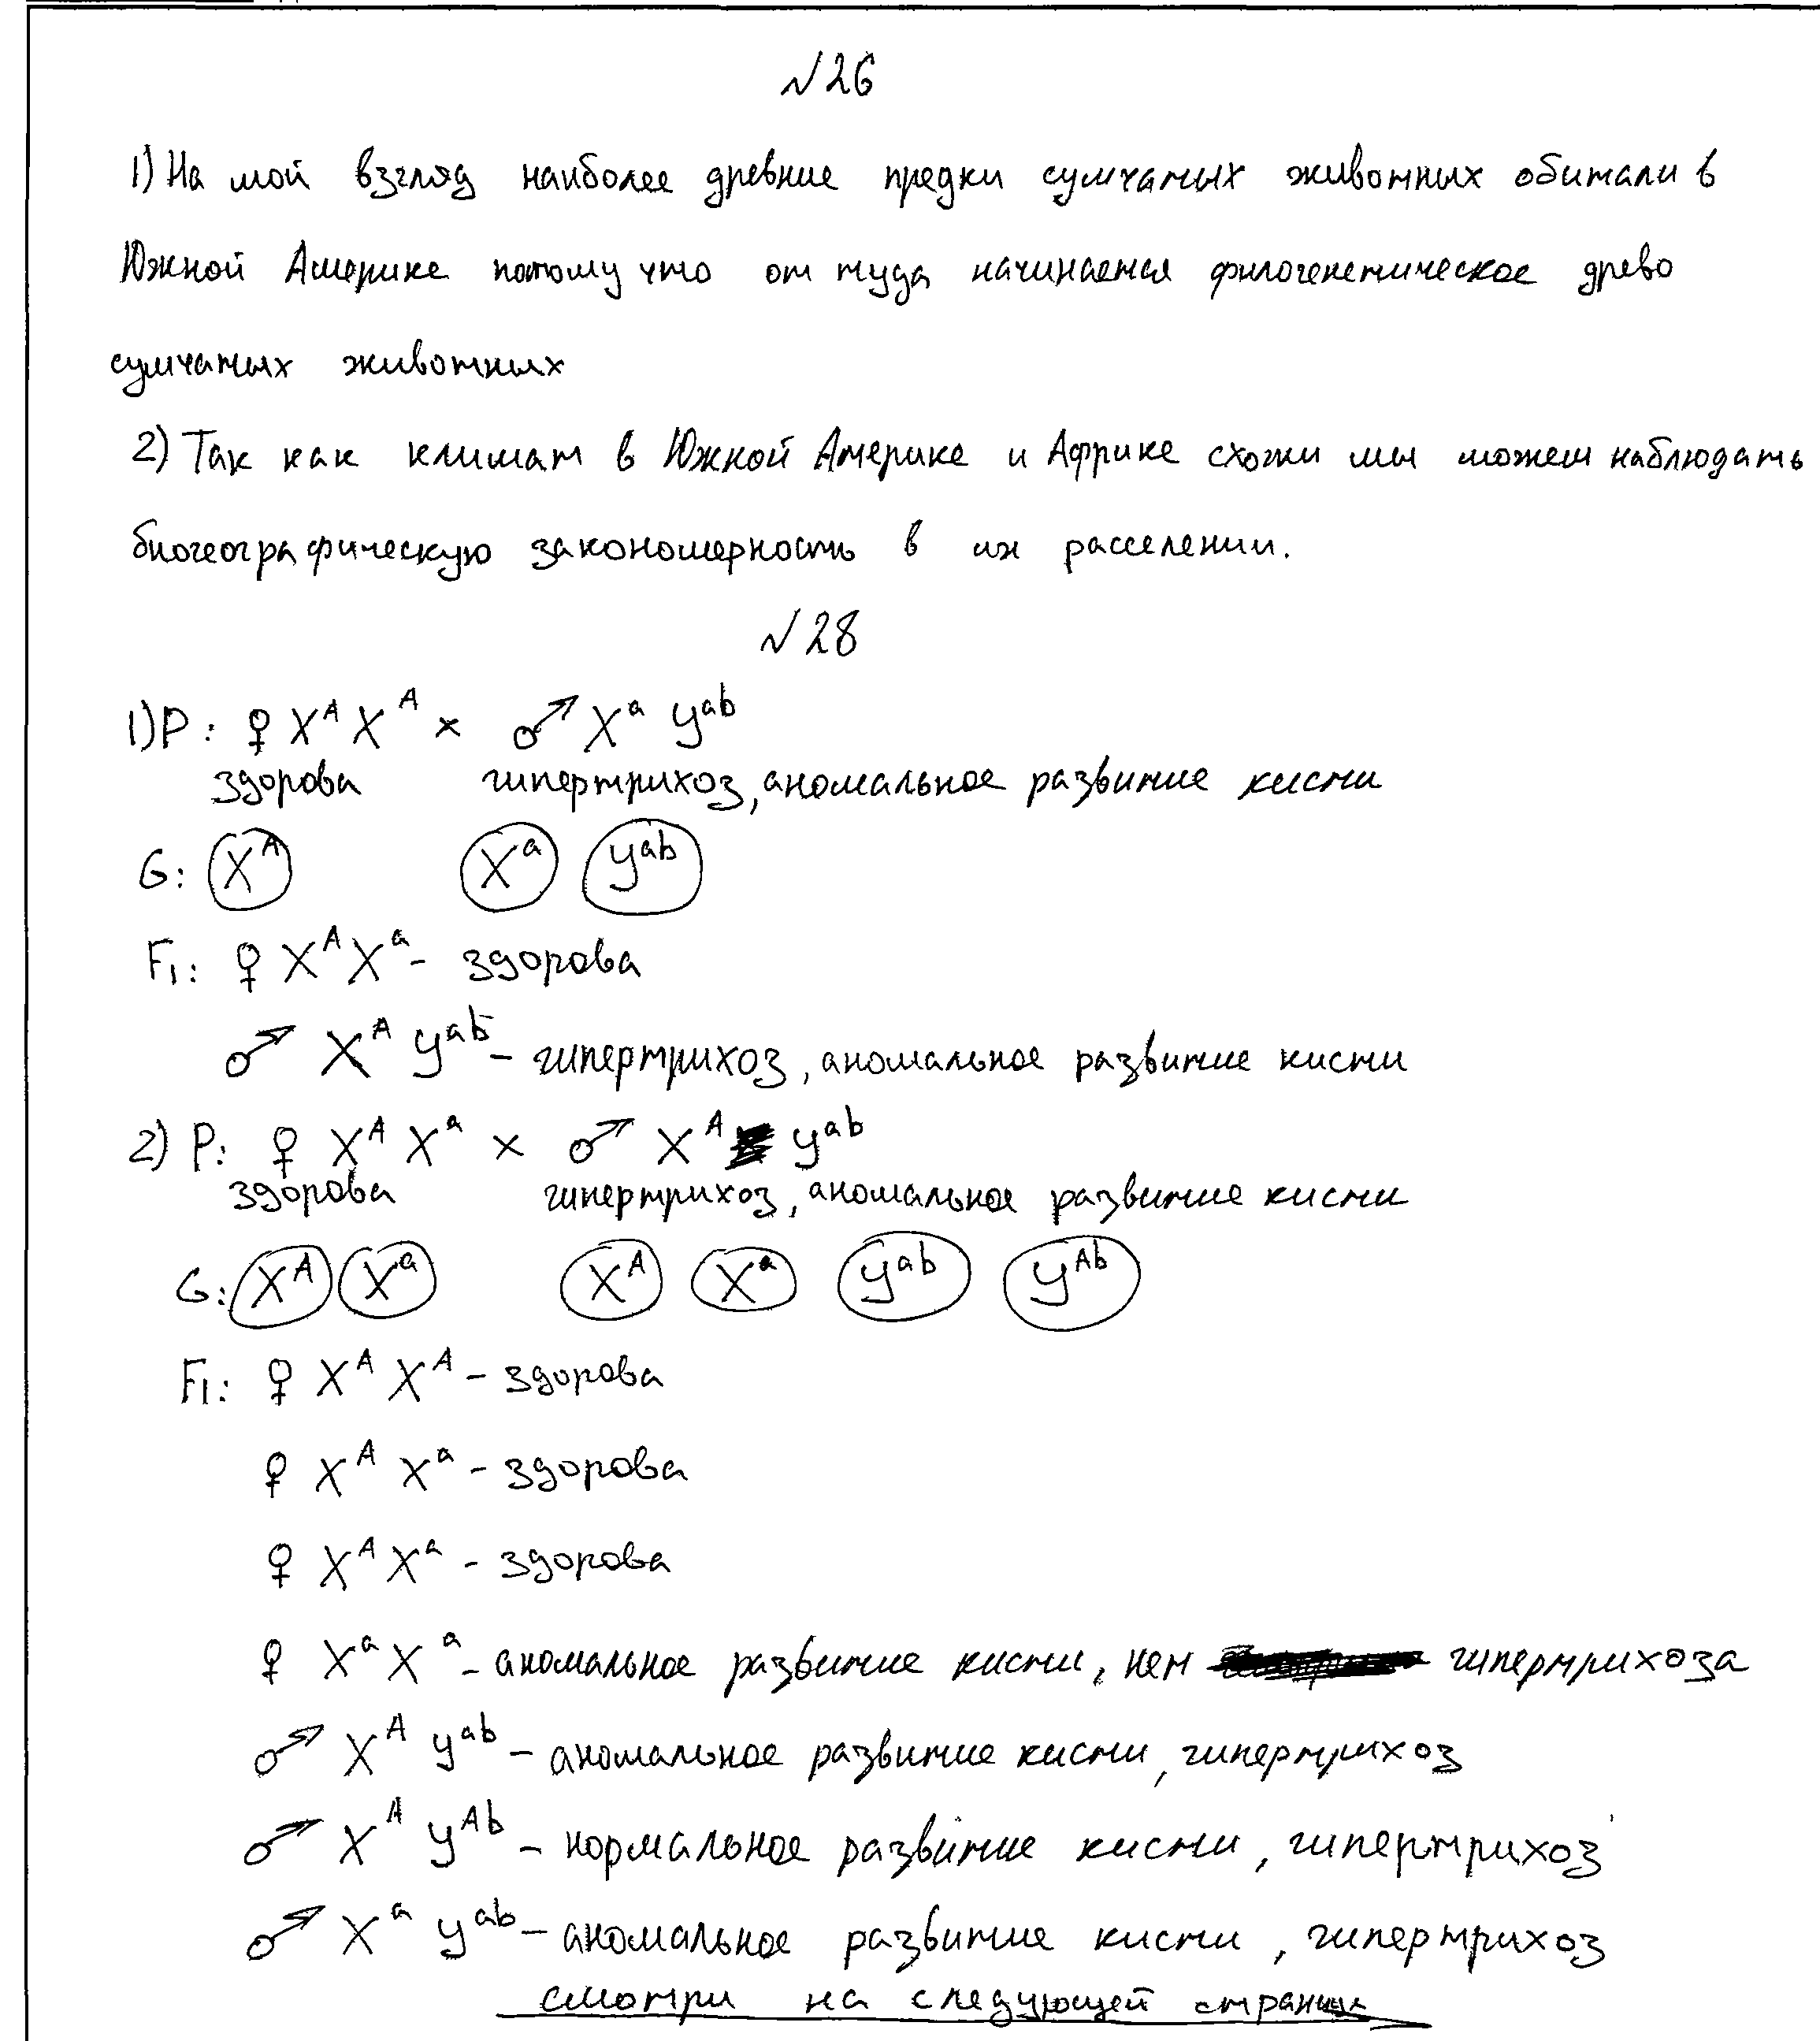 №26
1) На мой взгляд наиболее древние предки сумчатых животных обитали в
Южной Америке потому что от туда начинается филогенетическое древо
сумчатых животных
2) Так как климат в Южной Америке и Африке схожи мы можем наблюдать
биогеографическую закономерность в их расселении.
№28
1) P: ♀ X^A X^A × ♂ X^a Y^ab
здорова гипертрихоз, аномальное развитие кисти
G: X^A X^a Y^ab
F1: ♀ X^A X^a - здорова
♂ X^A Y^ab - гипертрихоз, аномальное развитие кисти
2) P: ♀ X^A X^a × ♂ X^A Y^ab
здорова гипертрихоз, аномальное развитие кисти
G: X^A X^a X^A X^a Y^ab Y^Ab
F1: ♀ X^A X^A - здорова
♀ X^A X^a - здорова
♀ X^A X^a - здорова
♀ X^a X^a - аномальное развитие кисти, нет гипертрихоза
♂ X^A Y^ab - аномальное развитие кисти, гипертрихоз
♂ X^A Y^Ab - нормальное развитие кисти, гипертрихоз
♂ X^a Y^ab - аномальное развитие кисти, гипертрихоз
смотри на следующей странице